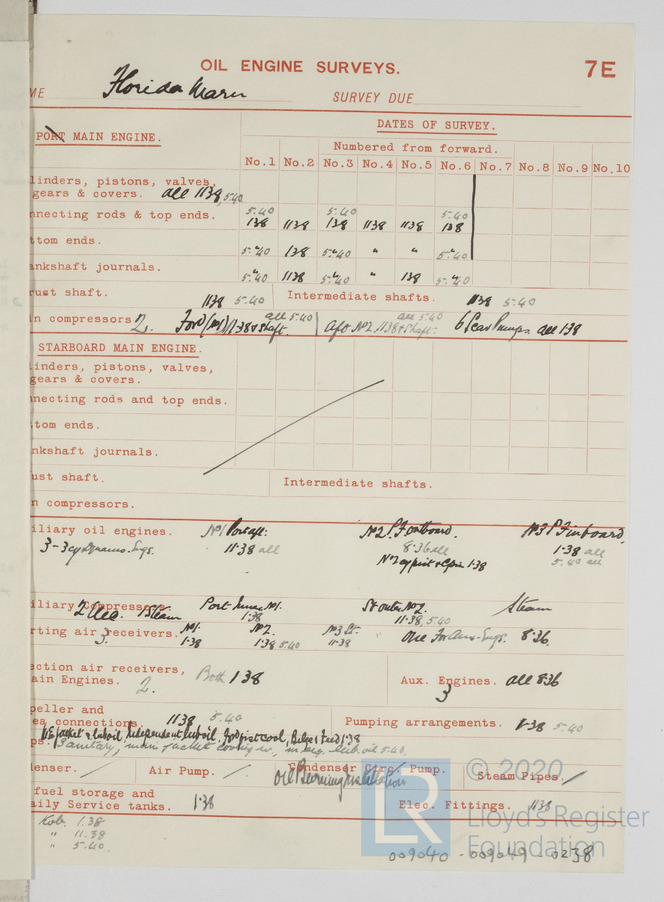 OIL ENGINE SURVEYS. 7E
ME Florida Maru SURVEY DUE
DATES OF SURVEY.
PORT MAIN ENGINE.
Numbered from forward.
No.1 No.2 No.3 No.4 No.5 No.6 No.7 No.8 No.9 No.10
linders, pistons, valves,
gears & covers. all 11·38, 5.40
5.40 5.40 5.40
nnecting rods & top ends. 1·38 11·38 1·38 11·38 11·38 1·38
ttom ends. 5.40 1·38 5.40 " " 5.40
ankshaft journals. 5.40 11·38 5.40 " 1·38 5.40
rust shaft. 11·38 5.40 Intermediate shafts. 11·38 5.40
all 5.40 all 5.40
n compressors 2. Ford (No1) 1·38 & shaft. aft No2 11·38 & shaft. 6 Scav Pumps all 1·38
STARBOARD MAIN ENGINE.
linders, pistons, valves,
gears & covers.
nnecting rods and top ends.
ttom ends.
nkshaft journals.
ust shaft. Intermediate shafts.
n compressors.
iliary oil engines. No1 Port aft: No2 P. For outboard. No3 P. F inboard.
3-3cy Dynamo Engs. 11·38 all 8·36 all 1·38 all
5.40 all
1·38
iliary Compressors. 2 Steam Port inner No1. St outer No2. Steam
1·38 11·38, 5.40
rting air receivers. 3. No1. No2. No3 St. One for Aux. Engs. 8·36.
1·38 1·38 5.40 11·38
ection air receivers,
ain Engines. 2. Both 1·38 Aux. Engines. all 8·36
3
peller and
ea connections. 11·38 5.40 Pumping arrangements. 1·38 5.40
ME Jacket & lub oil, Independent lub oil, For pist cool, Bilge & Feed 1·38
ps. Sanitary, main jacket cooling w, lub oil 5.40.
denser. Air Pump. Condenser Circ. Pump. Steam Pipes.
Oil Burning Installation
fuel storage and
aily Service tanks. 1·38 Elec. Fittings. 11·38
Kob. 1.38
" 11.38
" 5.40
© 2020
LR
Lloyd's Register
Foundation
009040 - 009049 - 0238